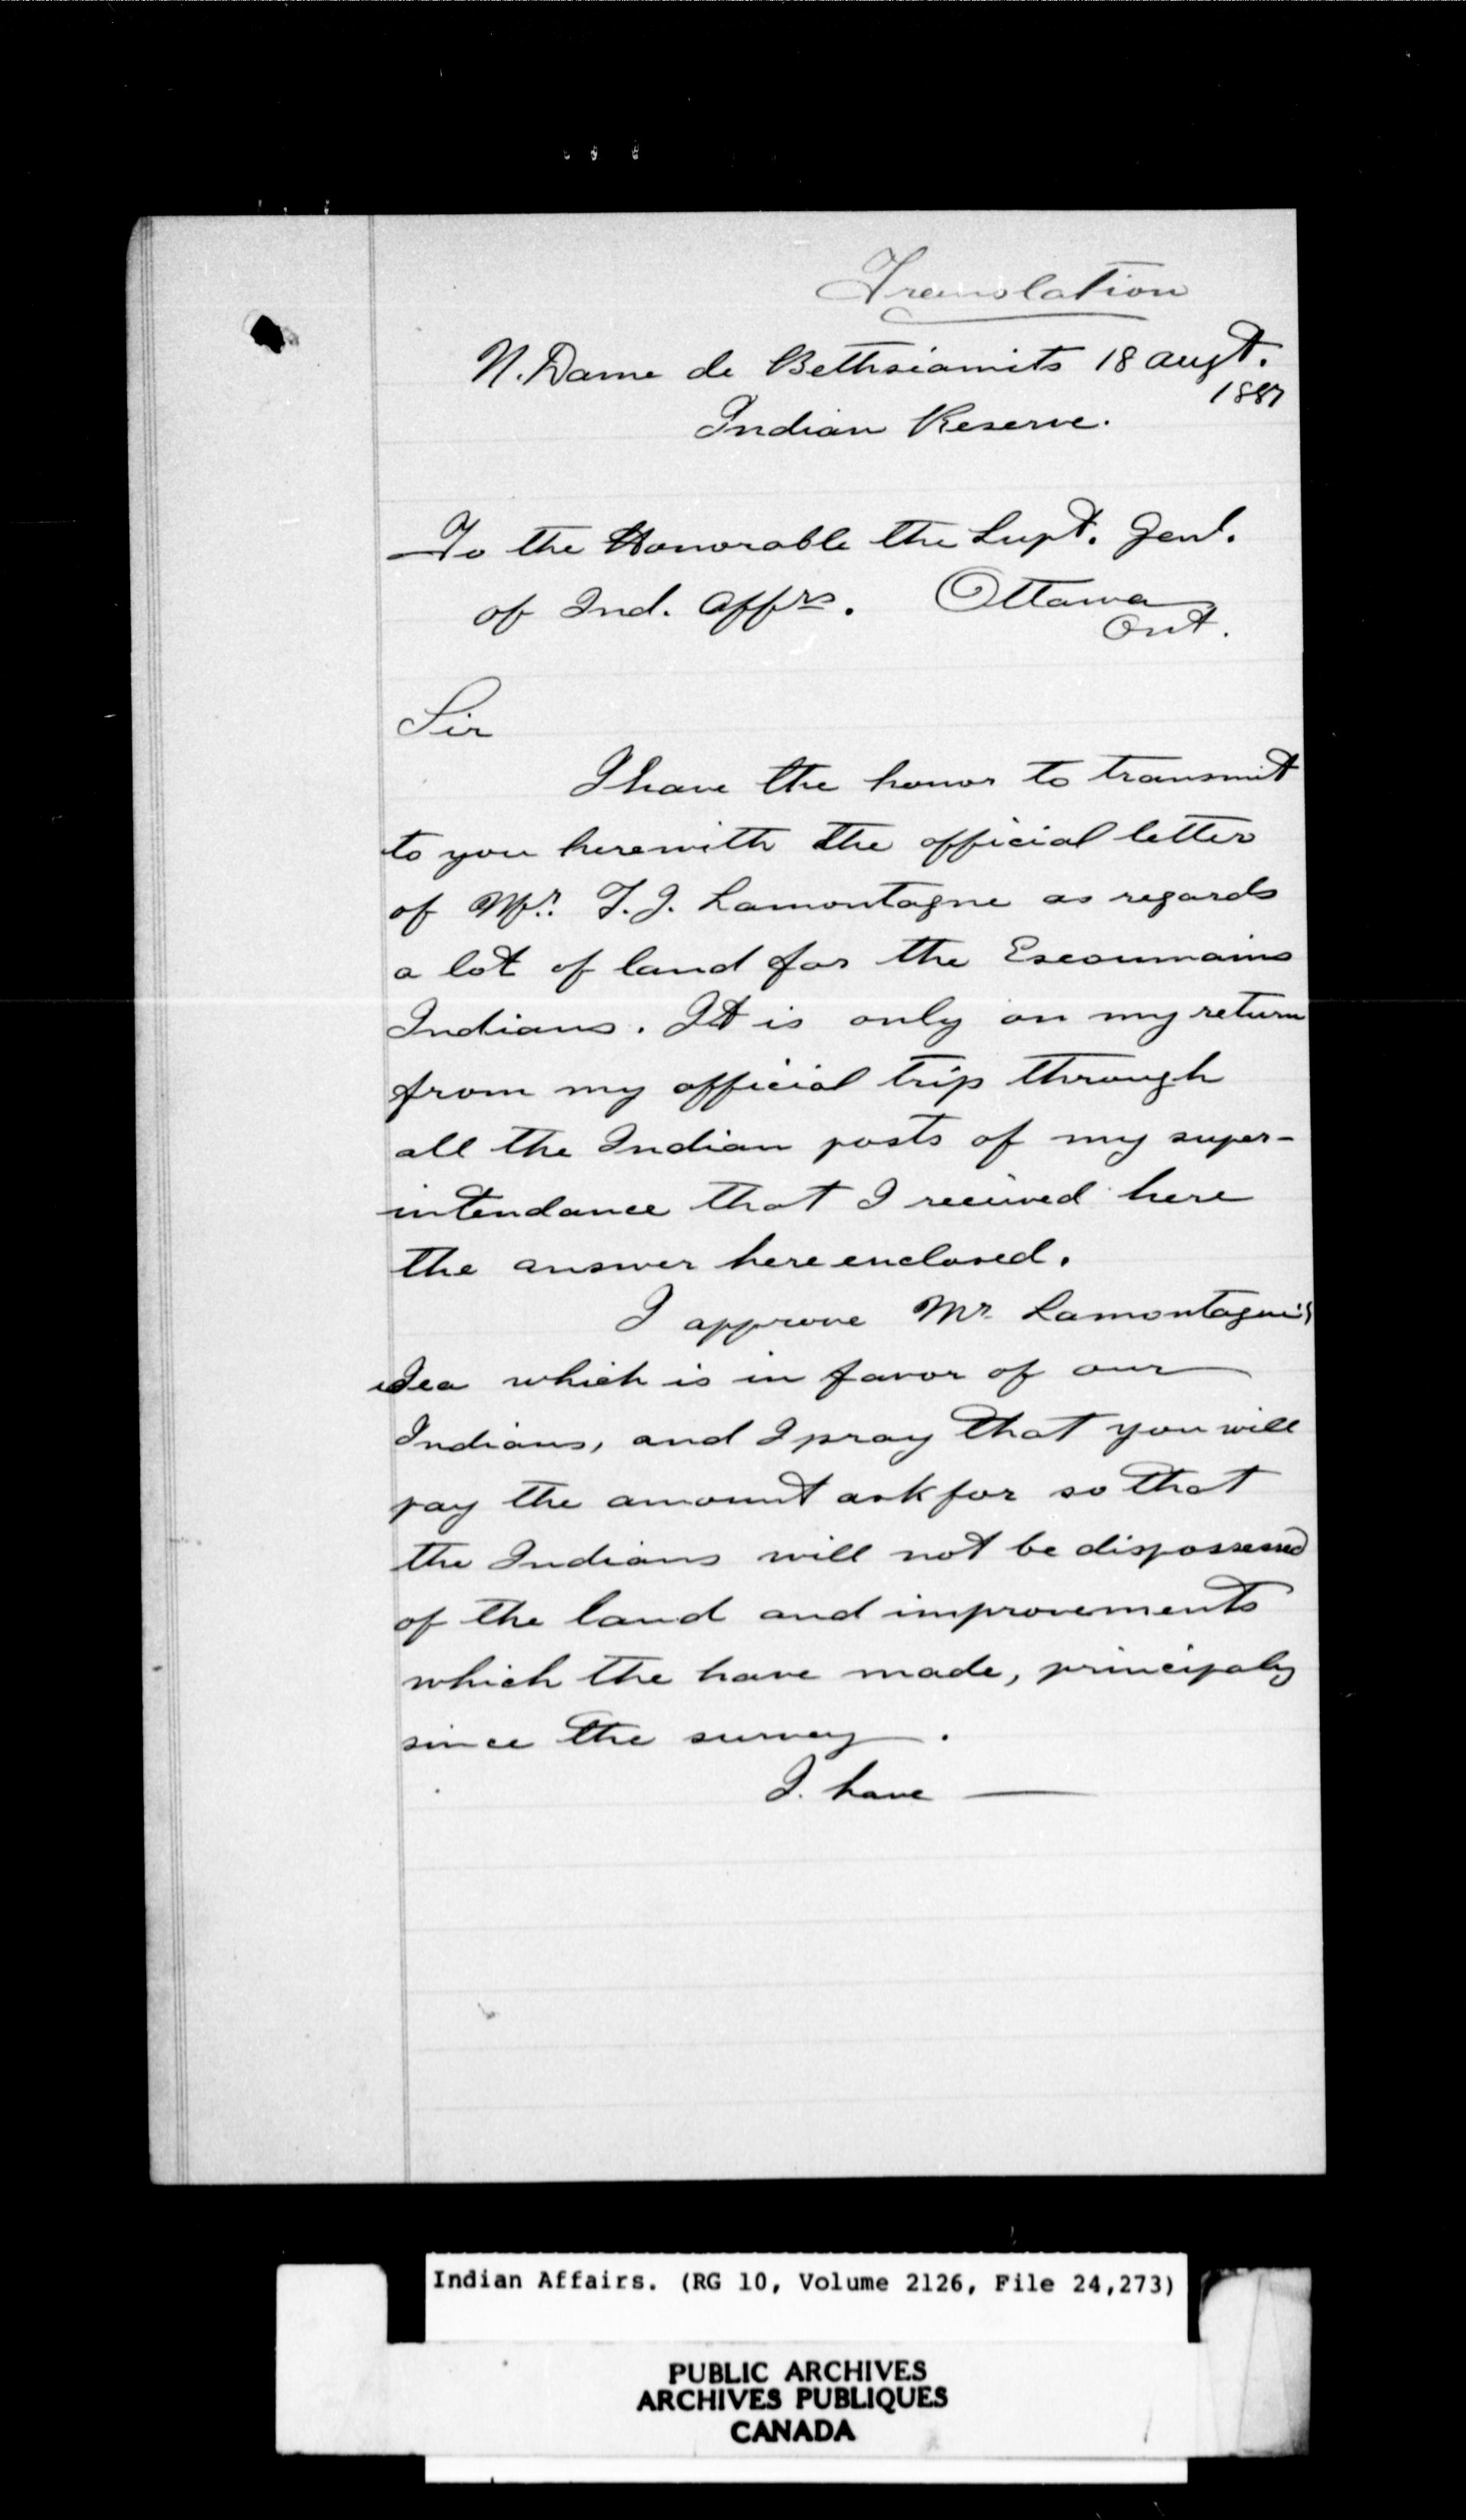 Translation
N. Dame de Bethsiamits 18 augt.
1887
Indian Reserve.
To the Honorable the Supt. Genl.
of Ind. Affrs. Ottawa
Ont.
Sir
I have the honor to transmit
to you herewith the official letter
of Mr. T. J. Lamontagne as regards
a lot of land for the Escoumains
Indians. It is only on my return
from my official trip through
all the Indian posts of my super-
intendance that I received here
the answer here enclosed.
I approve Mr. Lamontagne's
idea which is in favor of our
Indians, and I pray that you will
pay the amount ask for so that
the Indians will not be dispossessed
of the land and improvements
which the have made, principaly
since the survey.
I. have —
Indian Affairs. (RG 10, Volume 2126, File 24,273)
PUBLIC ARCHIVES
ARCHIVES PUBLIQUES
CANADA